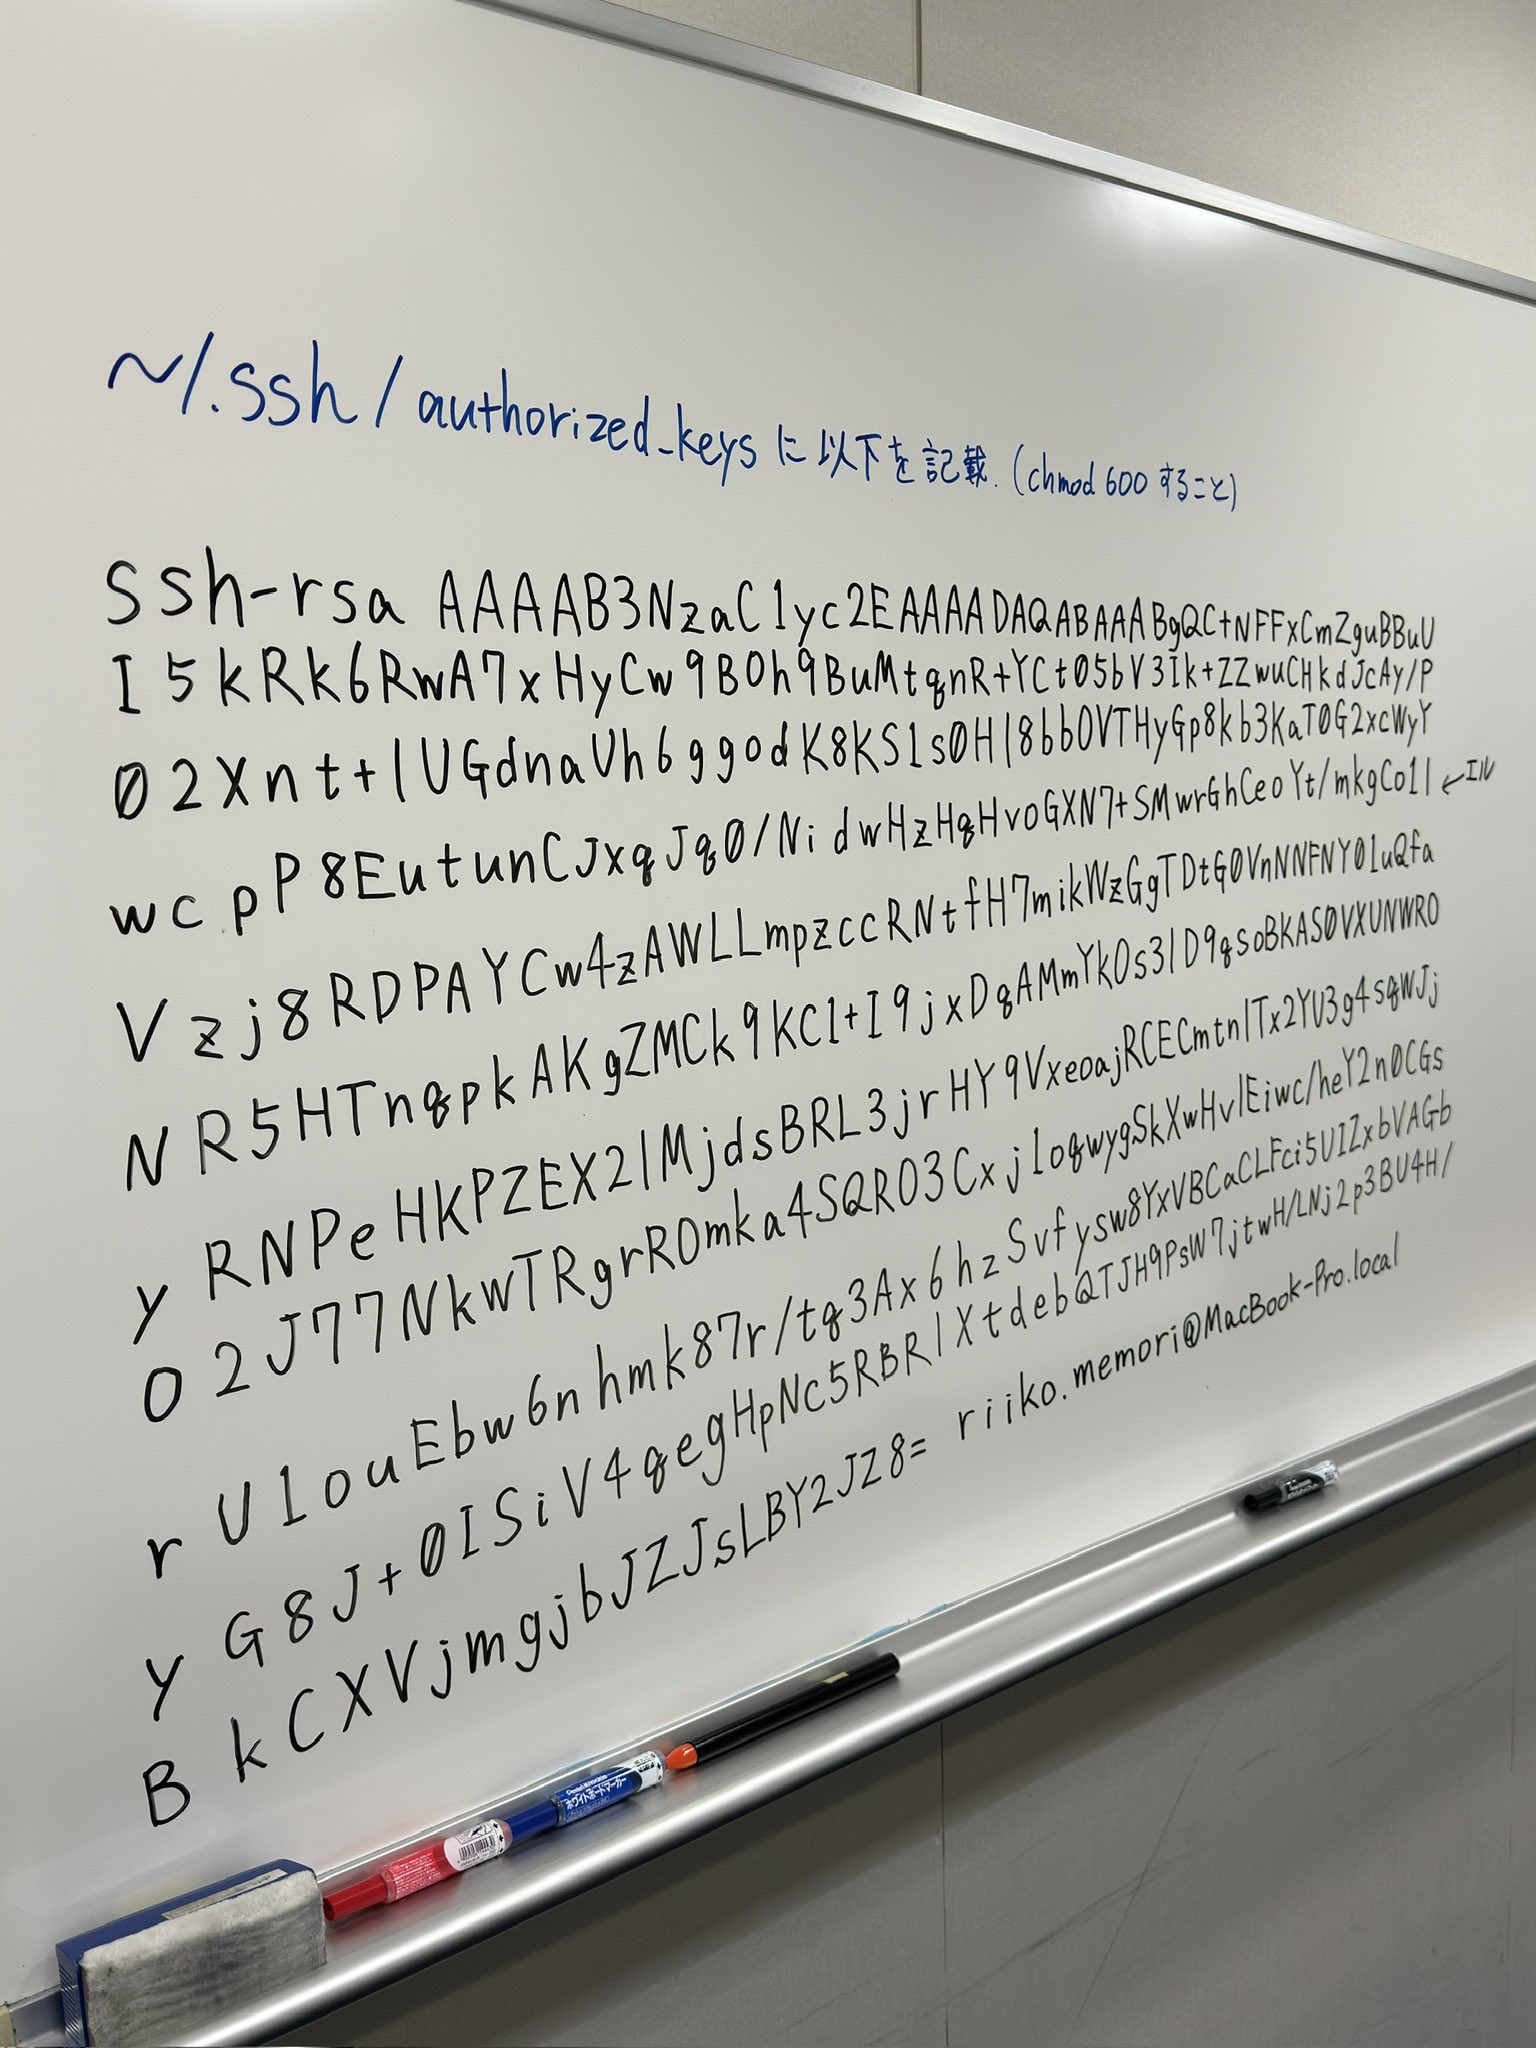 ~/.ssh/authorized_keys に以下を記載. (chmod 600 すること)
ssh-rsa AAAAB3NzaC1yc2EAAAADAQABAAABgQCtNFFxCmZguBBuU
I5kRk6RwA7xHyCw9BOh9BuMtqnR+YCt05bV3Ik+ZZwuCHkdJcAy/P
02Xnt+lUGdnaUh6ggodK8KS1s0Hl8bbOVTHyGp8kb3KaT0G2xcWyY
wcpP8EutunCJxqJq0/NidwHzHqHvoGXN7+SMwrGhCeoYt/mkgCo1l ←エル
Vzj8RDPAYCw4zAWLLmpzccRNtfH7mikWzGgTDtG0VnNNFNY01uQfa
NR5HTnqpkAKgZMCk9KCl+I9jxDqAMmYkOs3lD9qsoBKAS0VXUNWRO
yRNPeHKPZEX2lMjdsBRL3jrHY9VxeoajRCECmtnlTx2YU3g4sqWJj
O2J77NkwTRgrROmka4SQRO3Cxj1oqwygSkXwHvlEiwc/heY2n0CGs
rU1ouEbw6nhmk87r/tq3Ax6hzSvfysw8YxVBCaCLFci5UIZxbVAGb
yG8J+0ISiV4qegHpNc5RBRlXtdebQTJH9PsW7jtwH/LNj2p3BU4H/
BkCXVjmgjbJZJsLBY2JZ8= riiko.memori@MacBook-Pro.local
ホワイトボードマーカー